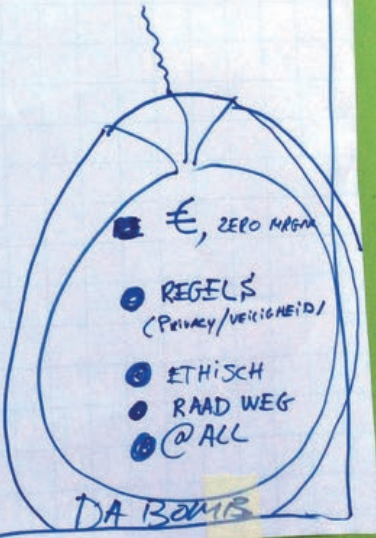 €, ZERO MRGNL
REGELS
(PRIVACY/VEILIGHEID)
ETHISCH
RAAD WEG
@ ALL
DA BOMB